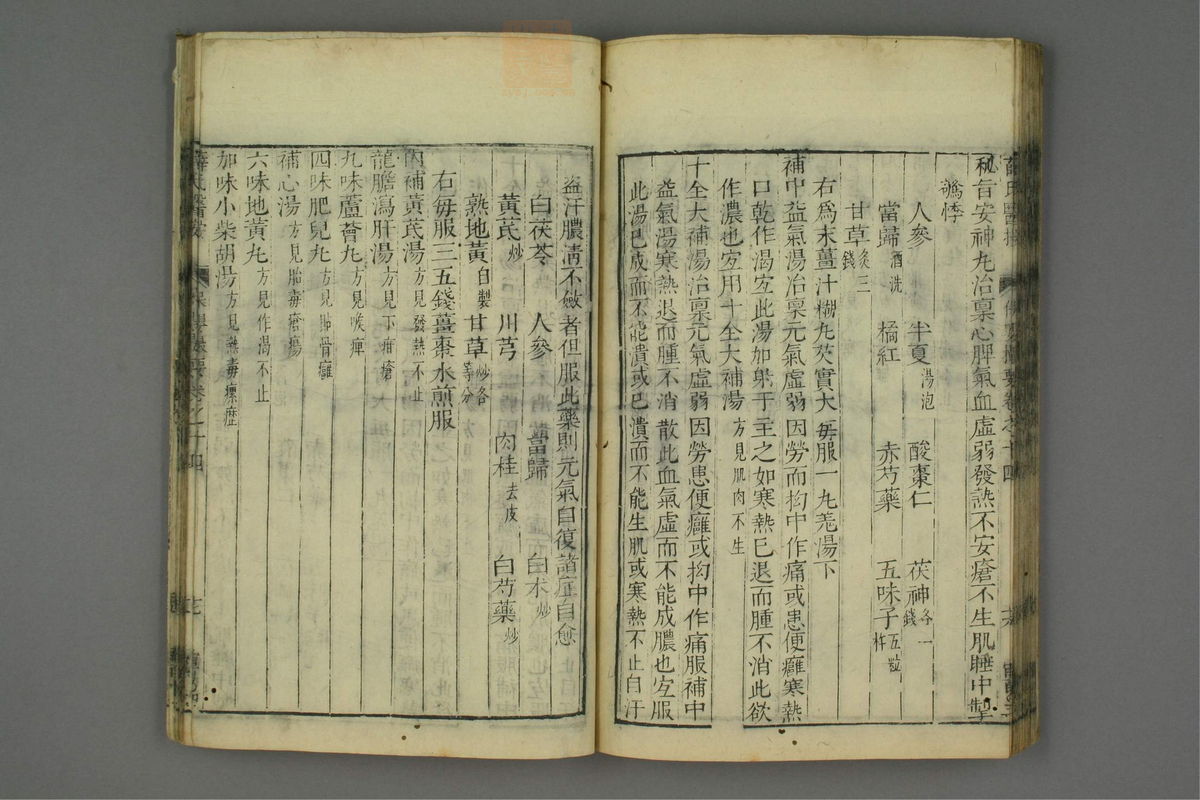 秘旨安神丸治禀心脾氣血虛弱發熱不安瘡不生肌睡中掣
驚悸
人參 半夏湯泡 酸棗仁 茯神各一錢
當歸酒洗 橘紅 赤芍藥 五味子五粒杵
甘草炙三錢
右為末薑汁糊丸芡實大每服一丸羗湯下
補中益氣湯治禀元氣虛弱因勞而拗中作痛或患便癰寒熱
口乾作渴宜此湯加
于主之如寒熱已退而腫不消此欲
作濃也宜用十全大補湯方見肌肉不生
十全大補湯治禀元氣虛弱因勞患便癰或拗中作痛服補中
益氣湯寒熱退而腫不消散此血氣虛而不能成膿也宜服
此湯已成而不能潰或已潰而不能生肌或寒熱不止自汗
盜汗膿清不斂者但服此藥則元氣自復諸症自愈
白茯苓 人參 當歸 白朮炒
黃芪炒 川芎 肉桂去皮 白芍藥炒
熟地黃自製 甘草炒各等分
右每服三五錢薑棗水煎服
內補黃芪湯方見發熱不止
龍膽瀉肝湯方見下疳瘡
九味蘆薈丸方見喉痺
四味肥兒丸方見貼骨癰
補心湯方見胎毒瘡瘍
六味地黃丸方見作渴不止
加味小柴胡湯方見熱毒瘰癧